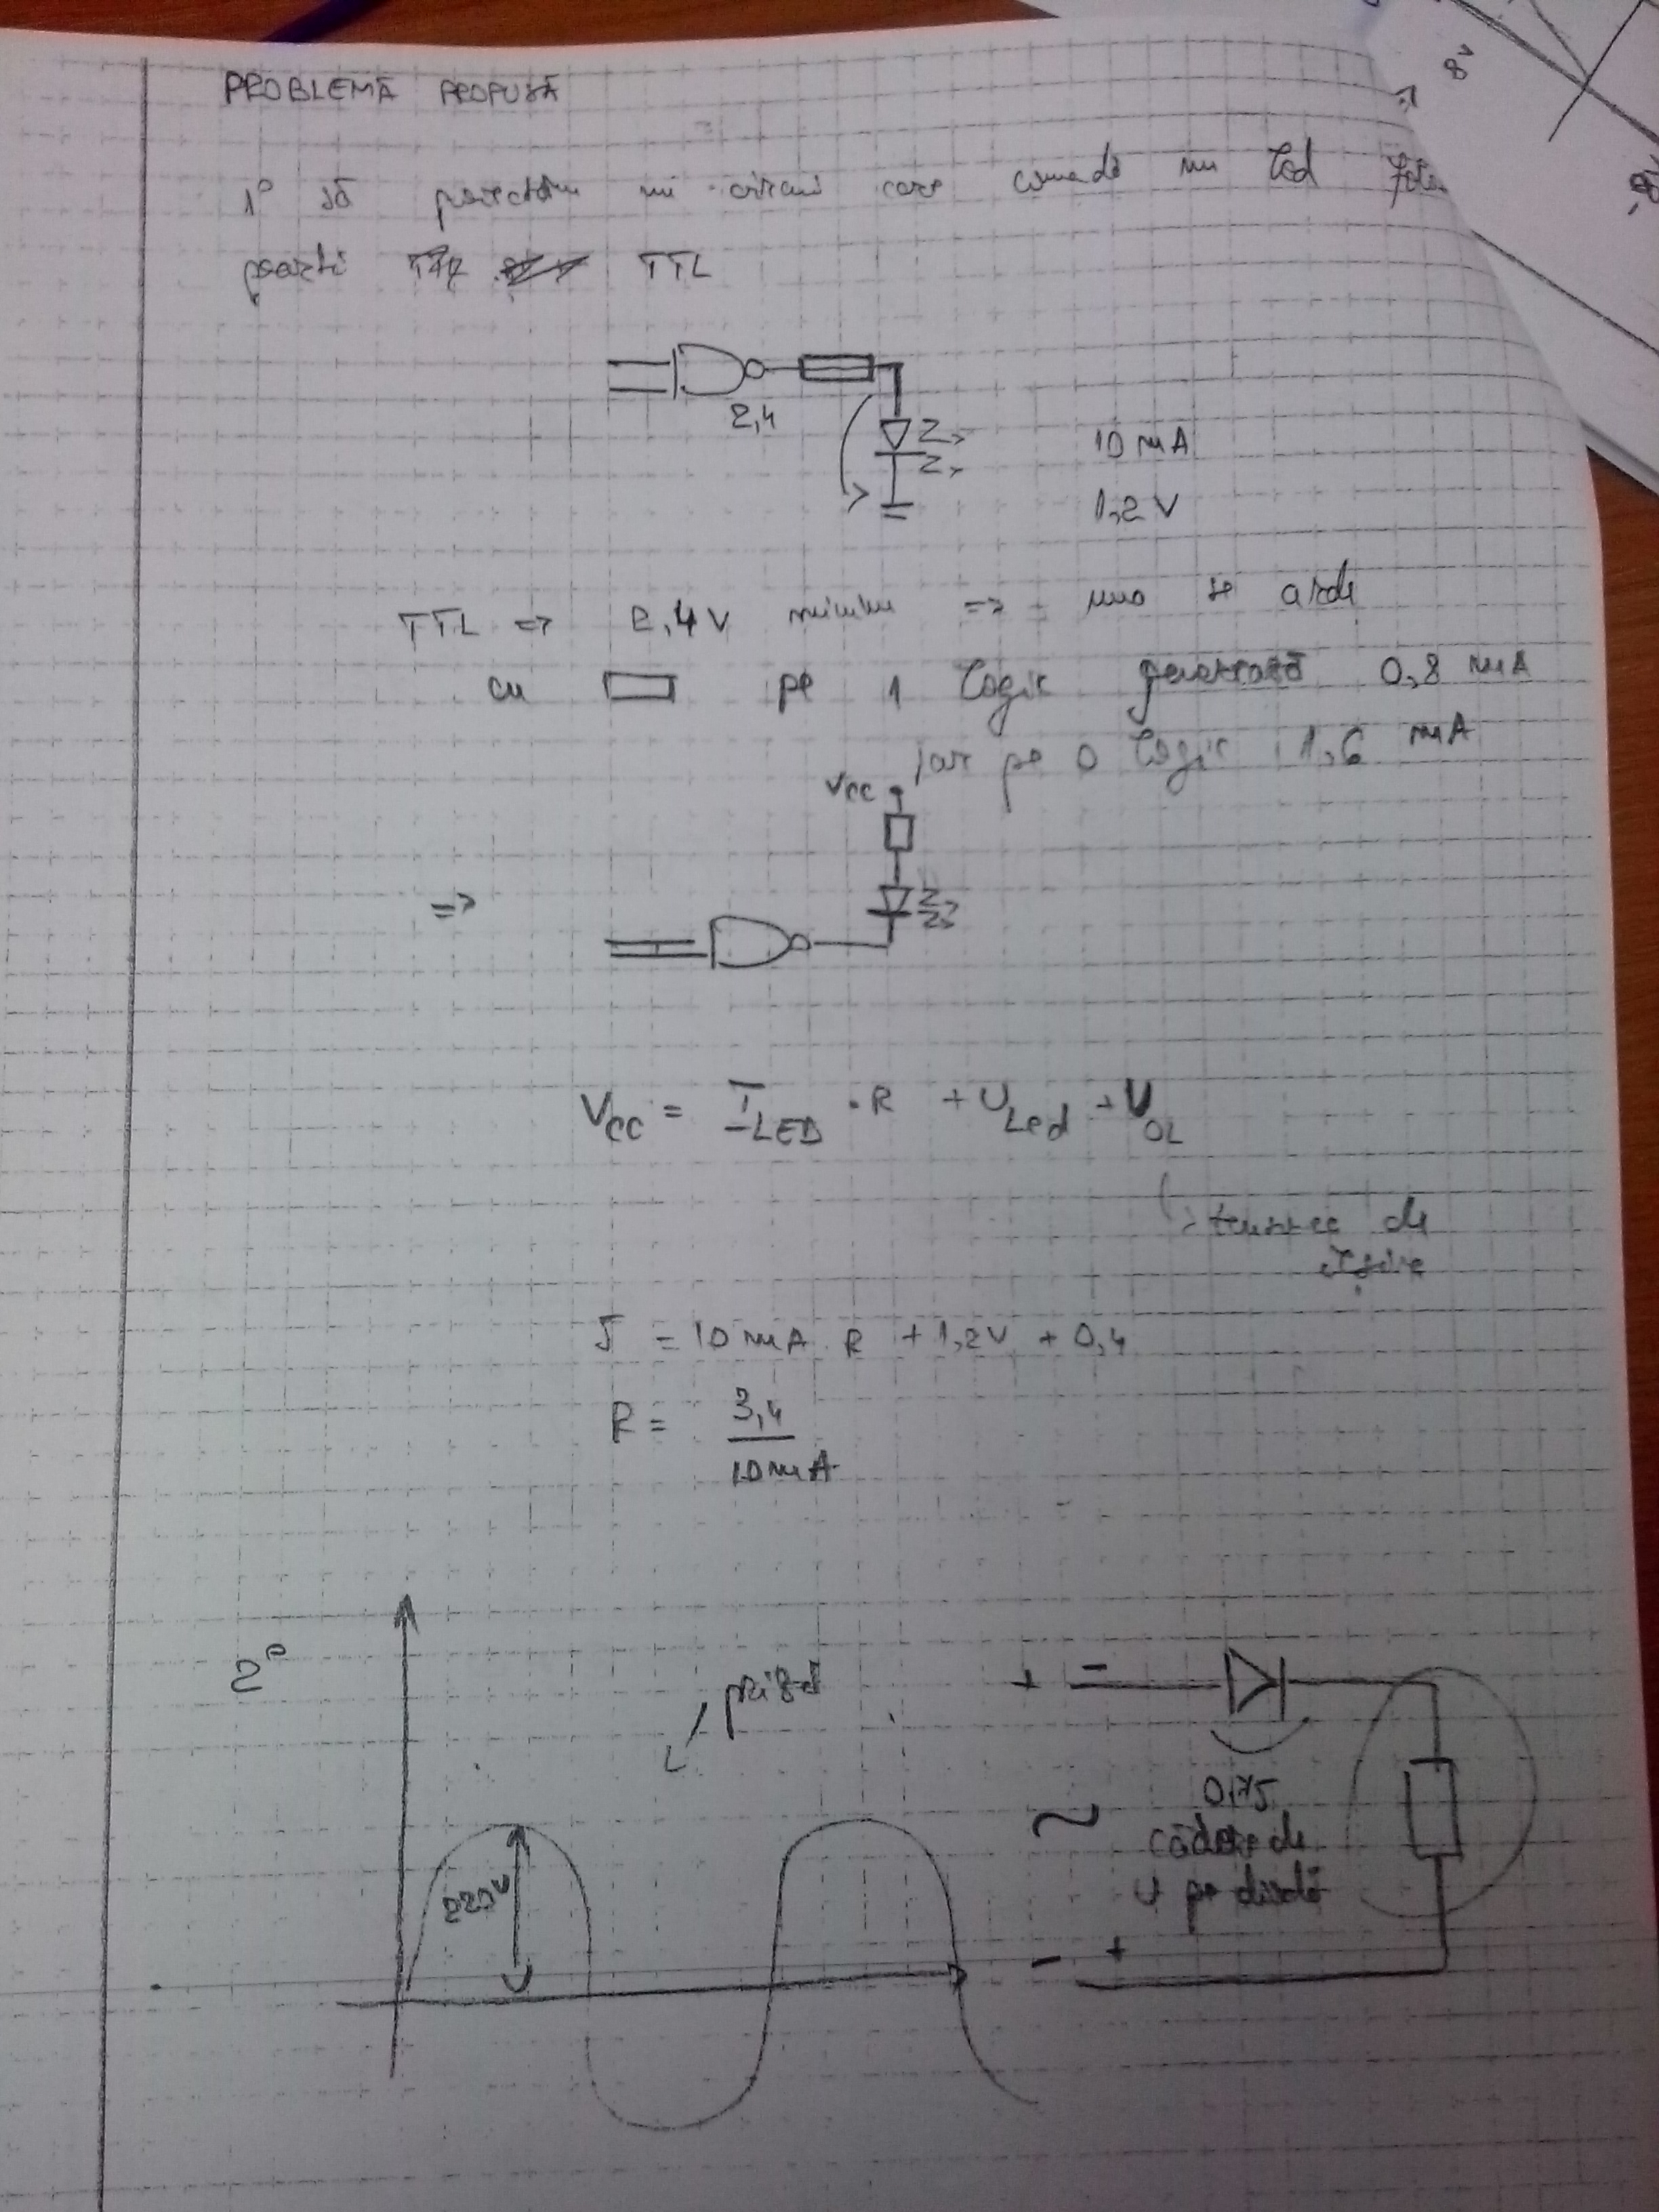 PROBLEMĂ PROPUSĂ
8V
1° să proiectăm un circuit care comandă un led
porti TTL
2,4
10 mA
1,2 V
TTL => 2,4V minim => se arde
cu pe 1 logic generează 0,8 mA
iar pe 0 logic 1,6 mA
Vcc
=>
Vcc = I LED · R + U Led + V OL
tensiune de
ieșire
5 = 10 mA · R + 1,2V + 0,4
R = 3,4
10 mA
2°
priză
+ -
220V
~
0,75
cădere de
U pe diodă
- +